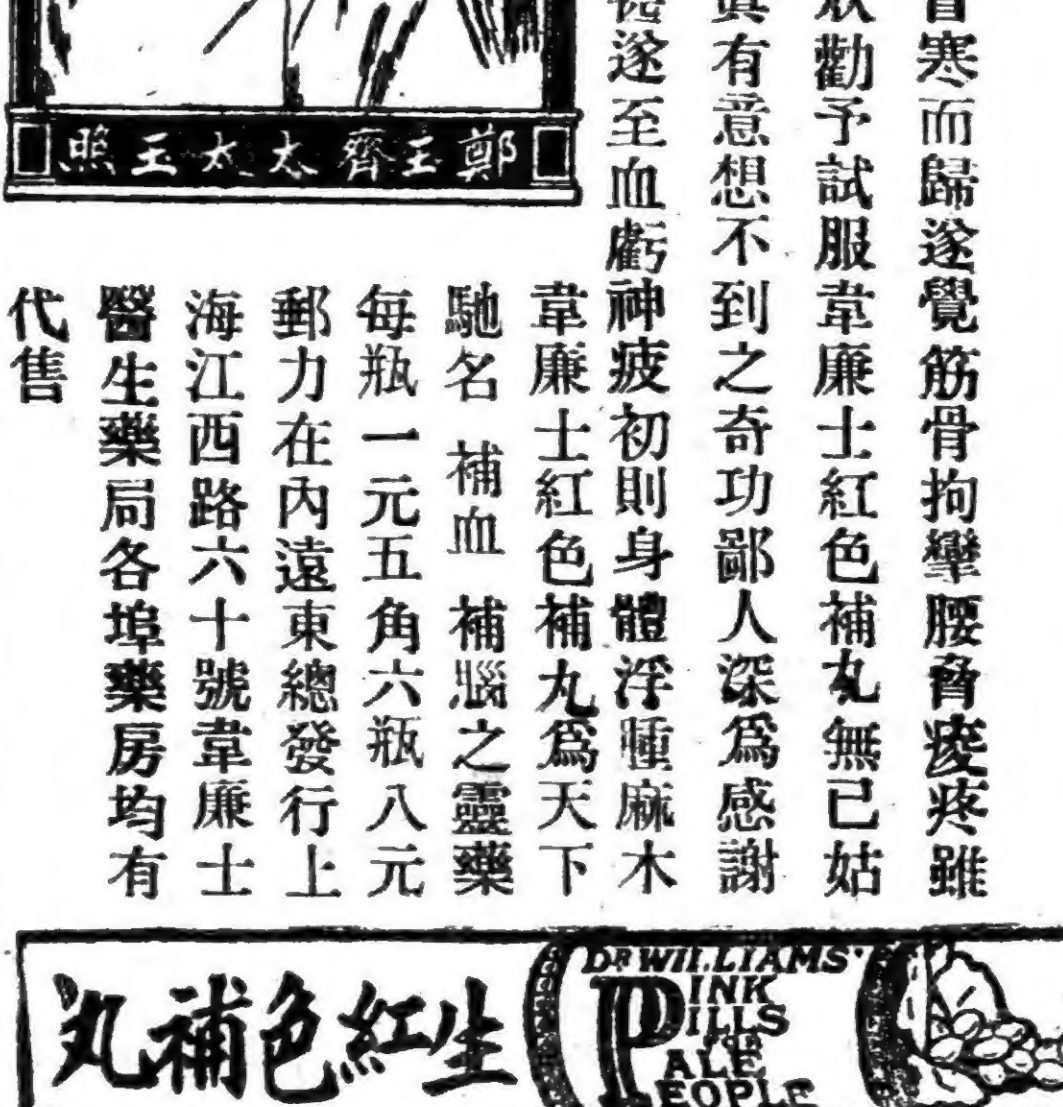 寒而歸遂覺筋骨拘攣腰脅痠疼雖
勸予試服韋廉士紅色補丸無已姑
有意想不到之奇功鄙人深爲感謝
遂至血虧神疲初則身體浮腫麻木
韋廉士紅色補丸爲天下
馳名 補血 補腦之靈藥
每瓶一元五角六瓶八元
郵力在內遠東總發行上
海江西路六十號韋廉士
醫生藥局各埠藥房均有
代售
鄭玉齊太太玉照
生紅色補丸
DR WILLIAMS'
PINK
PILLS
PALE
PEOPLE